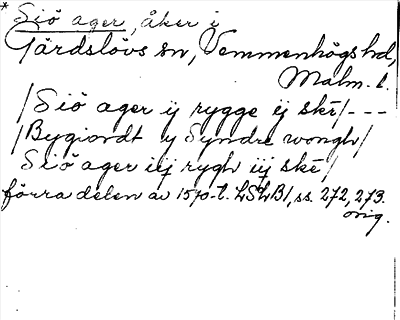 * Siö ager, åker i
Gärdslövs sn, Vemmenhögs hd,
Malm. l.
/Siö ager ij rygge ij skē/---
/Bygiordt y Syndre wongh/
Siö ager iij rygh iij skē/
förra delen av 1570-t. LSLB1, ss. 272, 273.
orig.